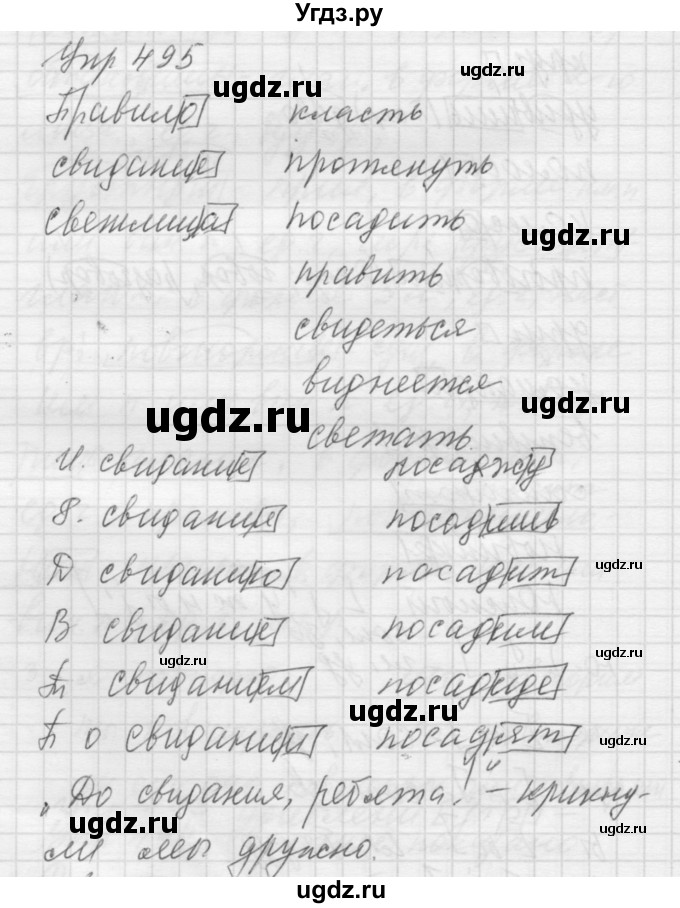 Угдз.ру
Упр 495
ugdz.ru
ugdz.ru
Правило класть
свидание протянуть
светлица посадить
ugdz.ru
править
свидеться
виднеется
ugdz.ru
ugdz.ru
светать.
И. свидание посаджу
Р. свидание посадишь
Д свиданию посадит
ugdz.ru
В свидание посадим
ugdz.ru
ugdz.ru
Т свиданием посадиде
ugdz.ru
П о свидании посадят
ugdz.ru
„До свидания, ребята!" – крикну-
ugdz.ru
ugdz.ru
ли мы дружно.
ugdz.ru